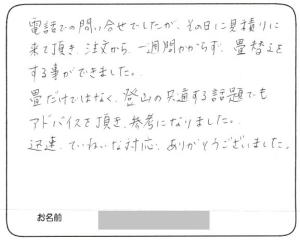 電話での問い合せでしたが、その日に見積りに
来て頂き、注文から、一週間かからず、畳替えを
する事ができました。
畳だけではなく、登山の共通する話題でも
アドバイスを頂き、参考になりました。
迅速、ていねいな対応、ありがとうございました。
お名前